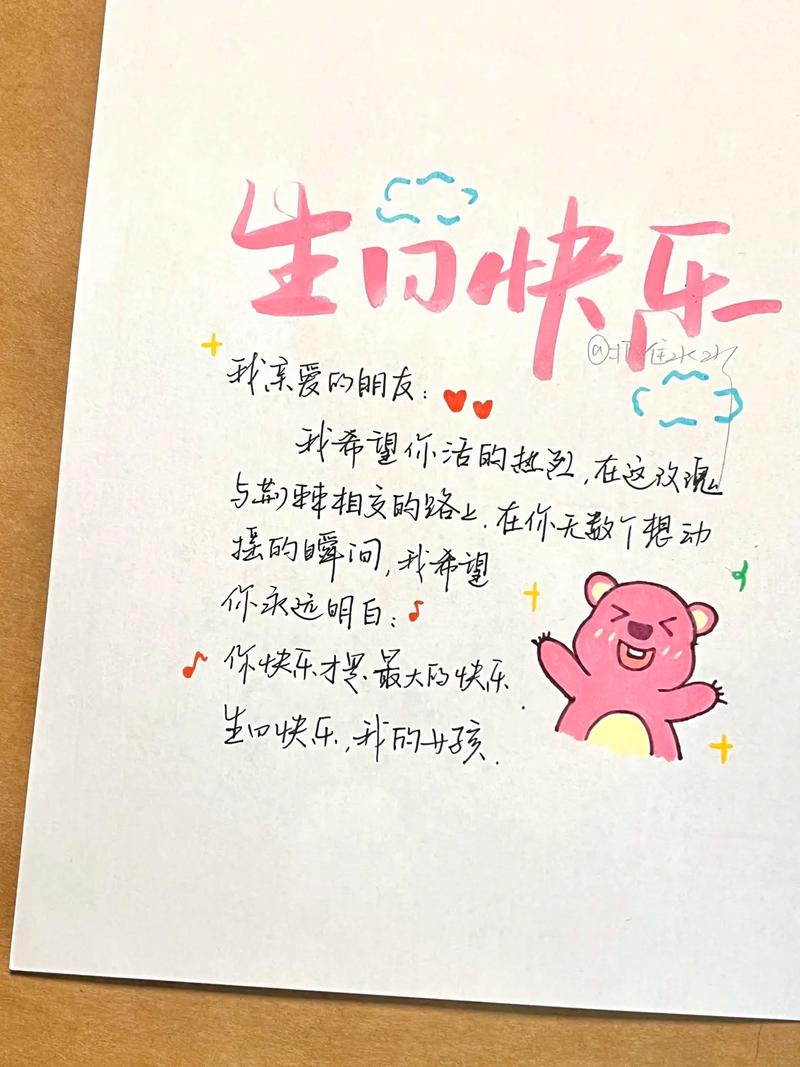 生日快乐
我亲爱的朋友：
我希望你活的热烈，在这玫瑰
与荆棘相交的路上，在你无数个想动
摇的瞬间，我希望
你永远明白：
你快乐才是最大的快乐.
生日快乐，我的女孩.